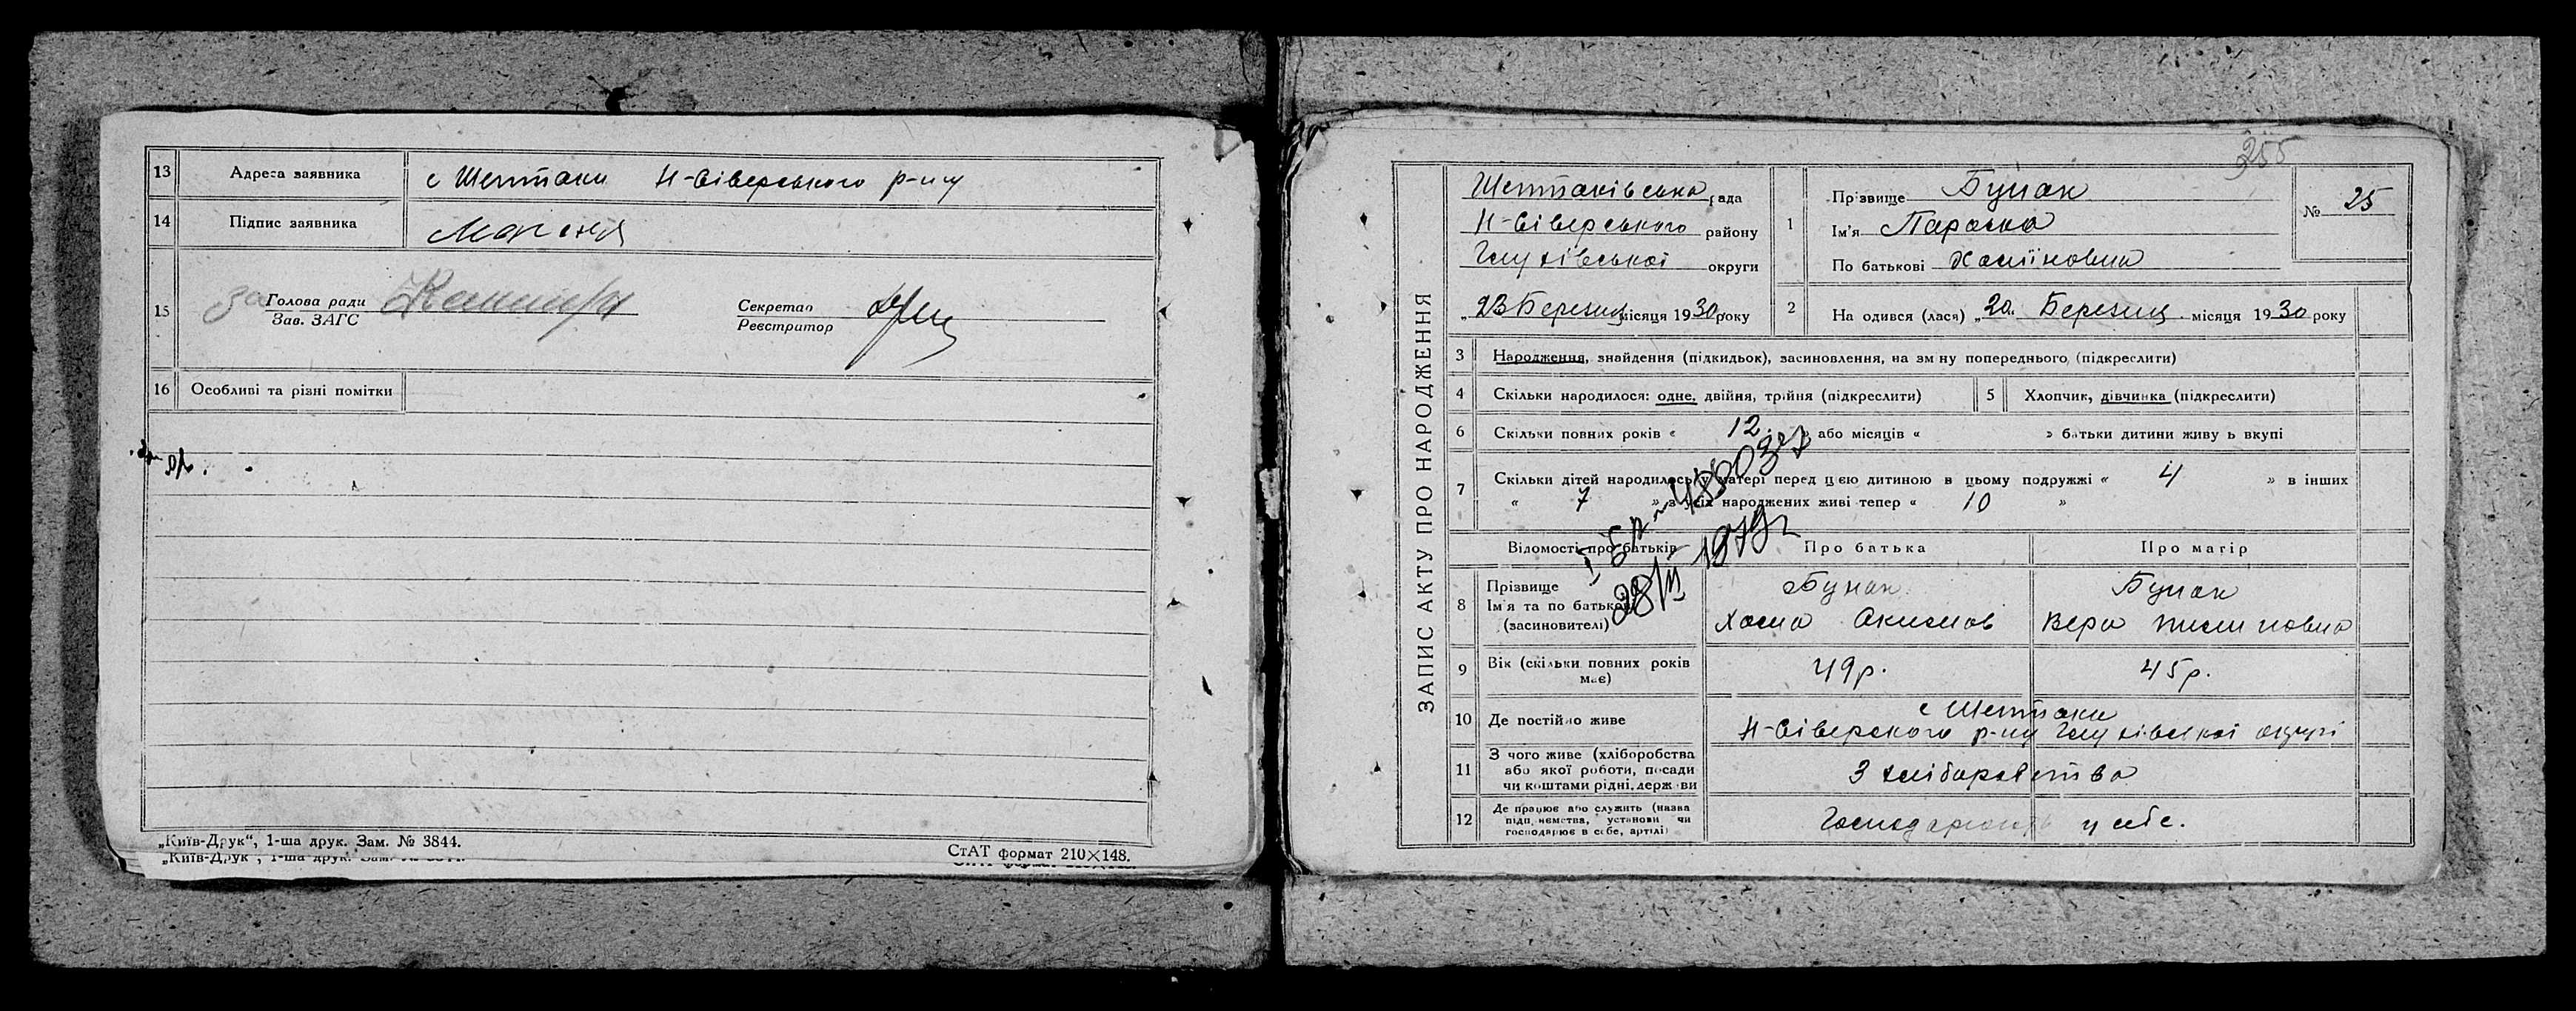 13 Адреса заявника с Шептаки Н-Сіверського р-ну
14 Підпис заявника
15 за Голова ради Секретар
Зав. ЗАГС Реєстратор
16 Особливі та різні помітки
„Київ-Друк“, 1-ша друк. Зам. № 3844.
СтАТ формат 210×148.
255
ЗАПИС АКТУ ПРО НАРОДЖЕННЯ
Шептаківська рада
Н-Сіверського району
Глухівської округи
„23 Березня місяця 1930 року
1 Прізвище Бунак
Ім'я Параска
По батькові Хоміновна
№ 25
2 Народився (лася) „20 Березня місяця 1930 року
3 Народження, знайдення (підкидьок), засиновлення, на зміну попереднього, (підкреслити)
4 Скільки народилося: одне, двійня, трійня (підкреслити)
5 Хлопчик, дівчинка (підкреслити)
6 Скільки повних років « 12 » або місяців « » батьки дитини живуть вкупі
7 Скільки дітей народилось у матері перед цією дитиною в цьому подружжі « 4 » в інших
« 7 » з усіх народжених живі тепер « 10 »
Відомості про батьків Про батька Про матір
8 Прізвище Бунак Бунак
Ім'я та по батькові Хома Акимов Вера
(засиновителі)
28/II 1979г
9 Вік (скільки повних років має) 49р. 45р.
10 Де постійно живе с Шептаки
Н-Сіверского р-ну Глухівської округи
11 З чого живе (хліборобства
або якої роботи, посади
чи коштами рідні, держави
З хліборобства
12 Де працює або служить (назва
підприємства, установи чи
господарює в себе, артілі)
Господарюють у себе.